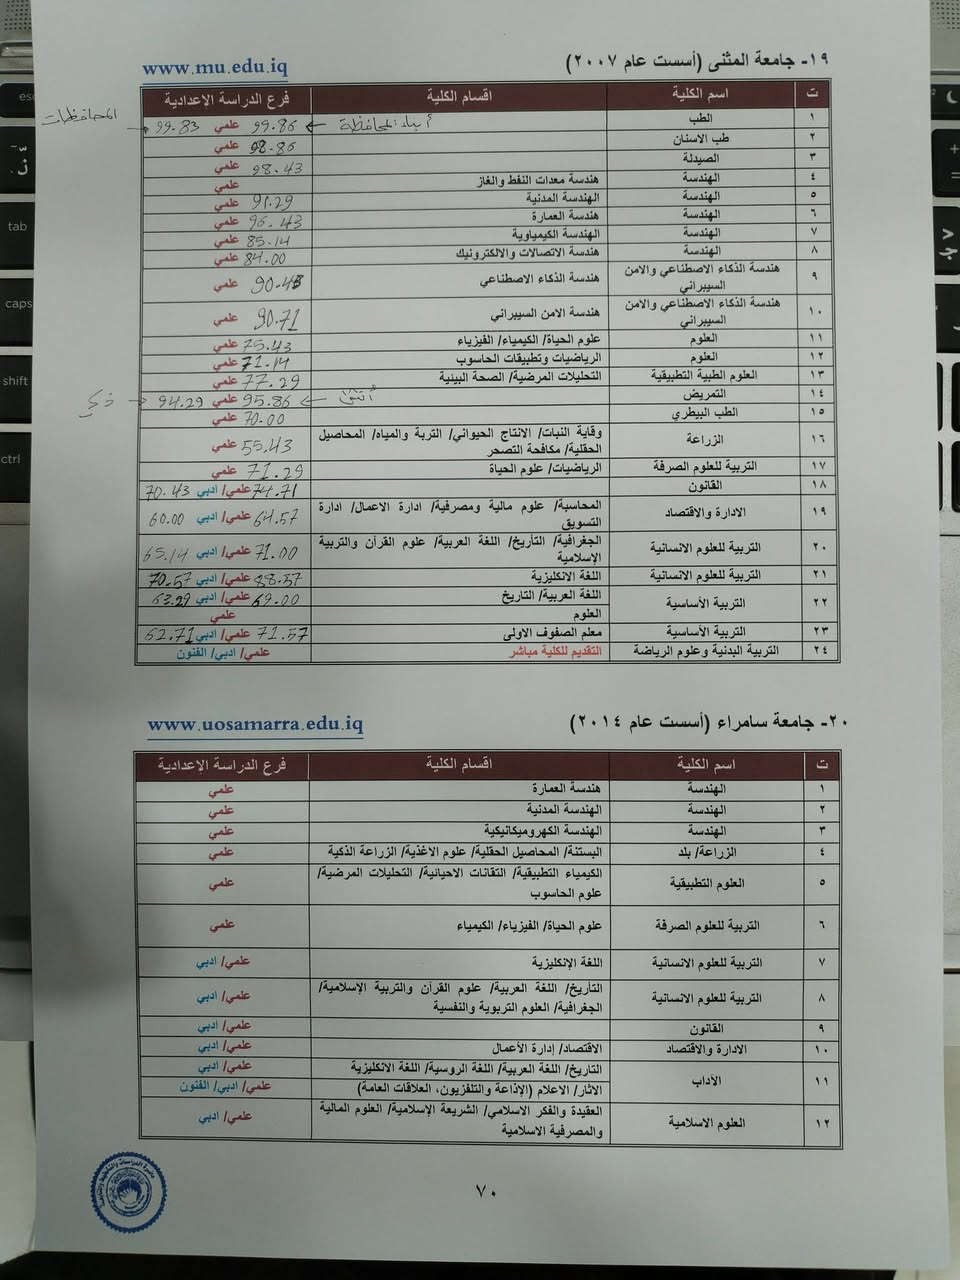 ١٩- جامعة المثنى (أسست عام ٢٠٠٧) www.mu.edu.iq
ت اسم الكلية اقسام الكلية فرع الدراسة الإعدادية
١ الطب أبناء المحافظة ← 99.86 علمي 99.83 → المحافظات
٢ طب الاسنان علمي 98.86
٣ الصيدلة علمي 98.43
٤ الهندسة هندسة معدات النفط والغاز علمي
٥ الهندسة الهندسة المدنية علمي 91.29
٦ الهندسة هندسة العمارة علمي 96.43
٧ الهندسة الهندسة الكيمياوية علمي 85.14
٨ الهندسة هندسة الاتصالات والالكترونيك علمي 84.00
٩ هندسة الذكاء الاصطناعي والامن السيبراني هندسة الذكاء الاصطناعي علمي
١٠ هندسة الذكاء الاصطناعي والامن السيبراني هندسة الامن السيبراني علمي 90.71
١١ العلوم علوم الحياة/ الكيمياء/ الفيزياء علمي 75.43
١٢ العلوم الرياضيات وتطبيقات الحاسوب علمي 71.14
١٣ العلوم الطبية التطبيقية التحليلات المرضية/ الصحة البيئية علمي 77.29
١٤ التمريض أنثى ← 95.86 علمي 94.29 → ذكر
١٥ الطب البيطري علمي 70.00
١٦ الزراعة وقاية النبات/ الانتاج الحيواني/ التربة والمياه/ المحاصيل الحقلية/ مكافحة التصحر علمي 55.43
١٧ التربية للعلوم الصرفة الرياضيات/ علوم الحياة علمي 71.29
١٨ القانون 74.71 علمي/ ادبي 70.43
١٩ الادارة والاقتصاد المحاسبة/ علوم مالية ومصرفية/ ادارة الاعمال/ ادارة التسويق 64.57 علمي/ ادبي 60.00
٢٠ التربية للعلوم الانسانية الجغرافية/ التأريخ/ اللغة العربية/ علوم القرآن والتربية الإسلامية 71.00 علمي/ ادبي 65.14
٢١ التربية للعلوم الانسانية اللغة الانكليزية 88.57 علمي/ ادبي 70.57
٢٢ التربية الأساسية اللغة العربية/ التاريخ 69.00 علمي/ ادبي 63.29
العلوم علمي
٢٣ التربية الأساسية معلم الصفوف الاولى 71.57 علمي/ ادبي 62.71
٢٤ التربية البدنية وعلوم الرياضة التقديم للكلية مباشر علمي/ ادبي/ الفنون
٢٠- جامعة سامراء (أسست عام ٢٠١٤) www.uosamarra.edu.iq
ت اسم الكلية اقسام الكلية فرع الدراسة الإعدادية
١ الهندسة هندسة العمارة علمي
٢ الهندسة الهندسة المدنية علمي
٣ الهندسة الهندسة الكهروميكانيكية علمي
٤ الزراعة/ بلد البستنة/ المحاصيل الحقلية/ علوم الاغذية/ الزراعة الذكية علمي
٥ العلوم التطبيقية الكيمياء التطبيقية/ التقانات الاحيائية/ التحليلات المرضية/ علوم الحاسوب علمي
٦ التربية للعلوم الصرفة علوم الحياة/ الفيزياء/ الكيمياء علمي
٧ التربية للعلوم الانسانية اللغة الإنكليزية علمي/ ادبي
٨ التربية للعلوم الانسانية التأريخ/ اللغة العربية/ علوم القرآن والتربية الإسلامية/ الجغرافية/ العلوم التربوية والنفسية علمي/ ادبي
٩ القانون علمي/ ادبي
١٠ الادارة والاقتصاد الاقتصاد/ إدارة الأعمال علمي/ ادبي
١١ الأداب التاريخ/ اللغة العربية/ اللغة الروسية/ اللغة الانكليزية علمي/ ادبي
الاثار/ الاعلام (الإذاعة والتلفزيون، العلاقات العامة) علمي/ ادبي/ الفنون
١٢ العلوم الاسلامية العقيدة والفكر الاسلامي/ الشريعة الإسلامية/ العلوم المالية والمصرفية الاسلامية علمي/ ادبي
٧٠
esc
tab
caps
shift
ctrl